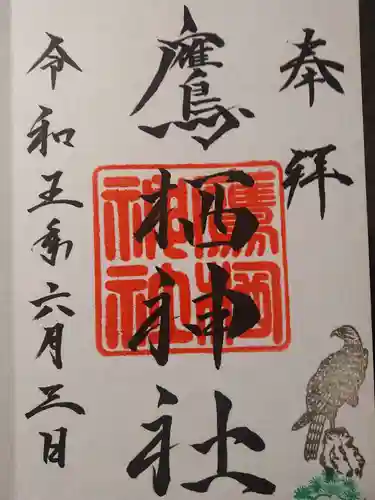 奉拝
鷹栖神社
鷹栖
神社
令和五年六月三日